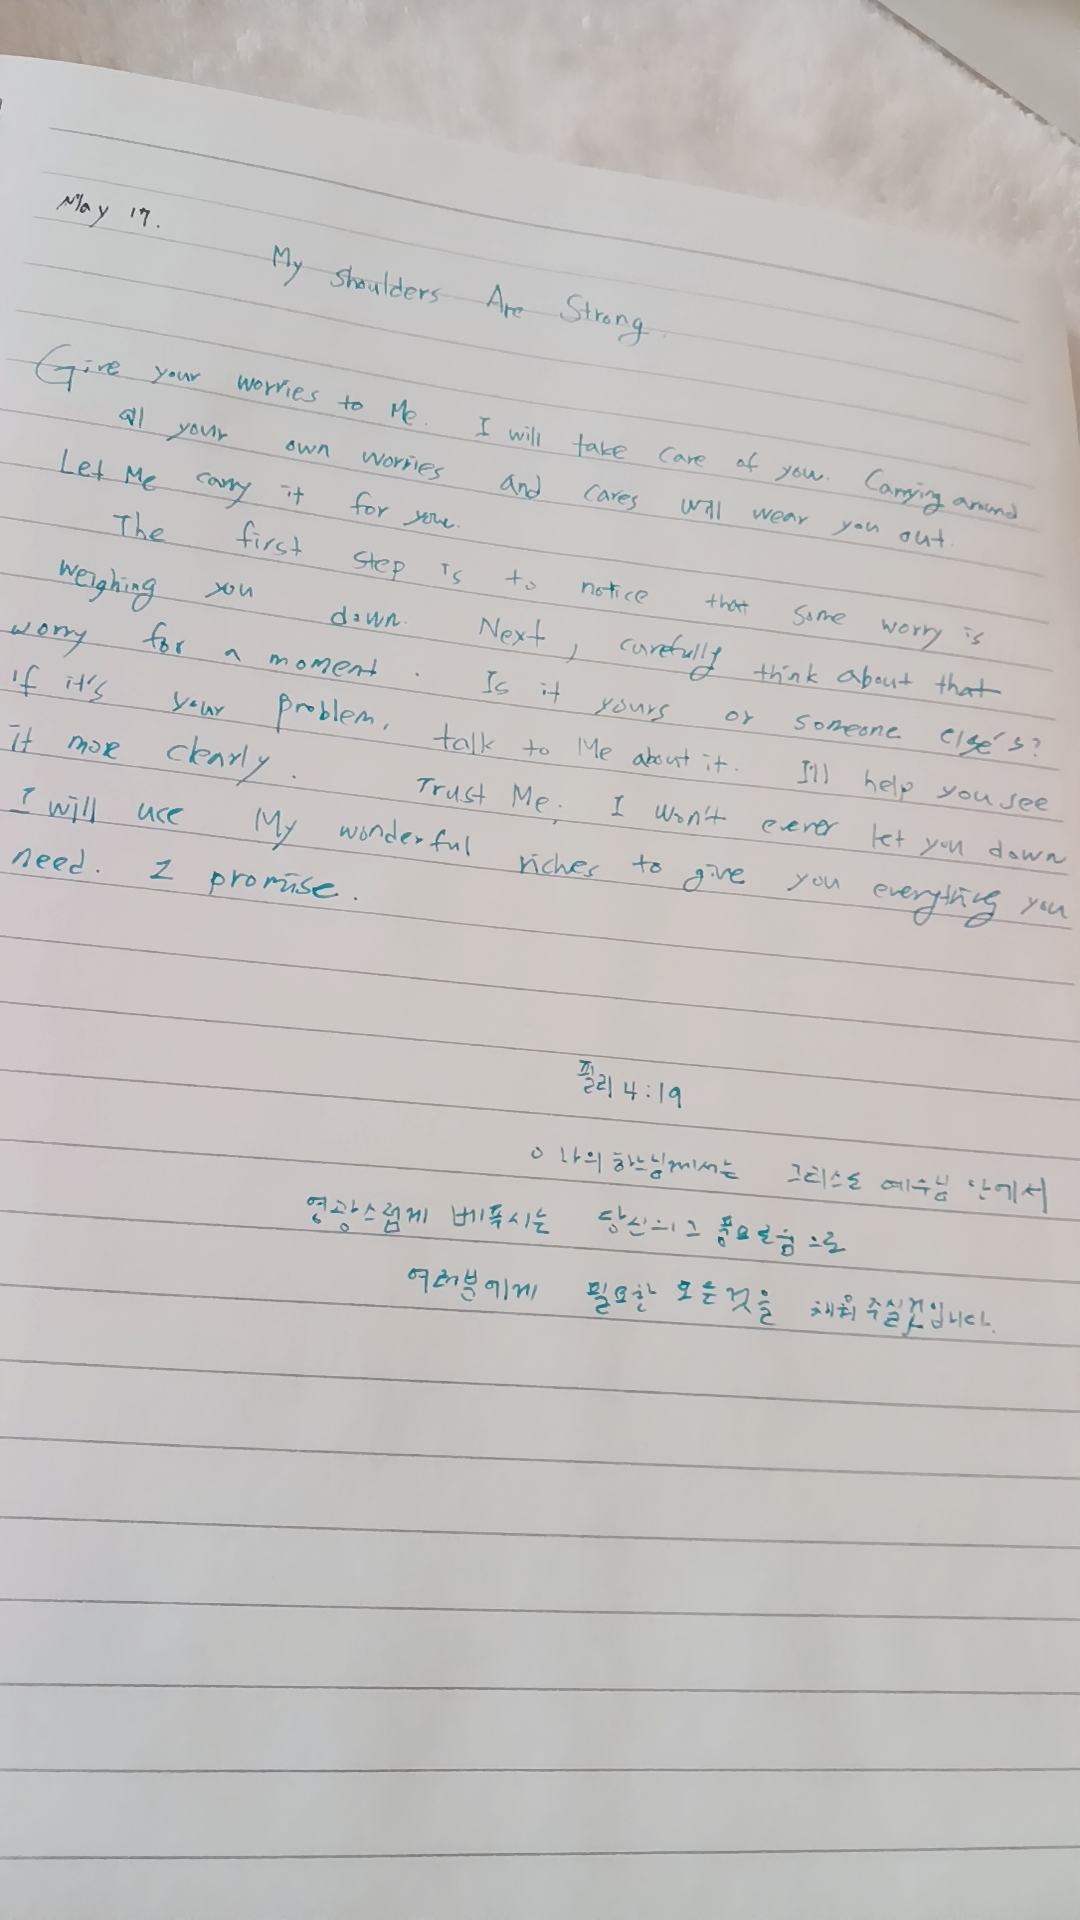 May 17.
My Shoulders Are Strong.
Give your worries to Me. I will take care of you. Carrying around
all your own worries and cares will wear you out.
Let Me carry it for you.
The first step is to notice that some worry is
weighing you down. Next, carefully think about that
worry for a moment. Is it yours or someone else's?
If it's your problem, talk to Me about it. I'll help you see
it more clearly. Trust Me, I won't ever let you down
I will use My wonderful riches to give you everything you
need. I promise.
필리 4:19
○ 나의 하느님께서는 그리스도 예수님 안에서
영광스럽게 베푸시는 당신의 그 풍요로움으로
여러분에게 필요한 모든 것을 채워 주실 것입니다.